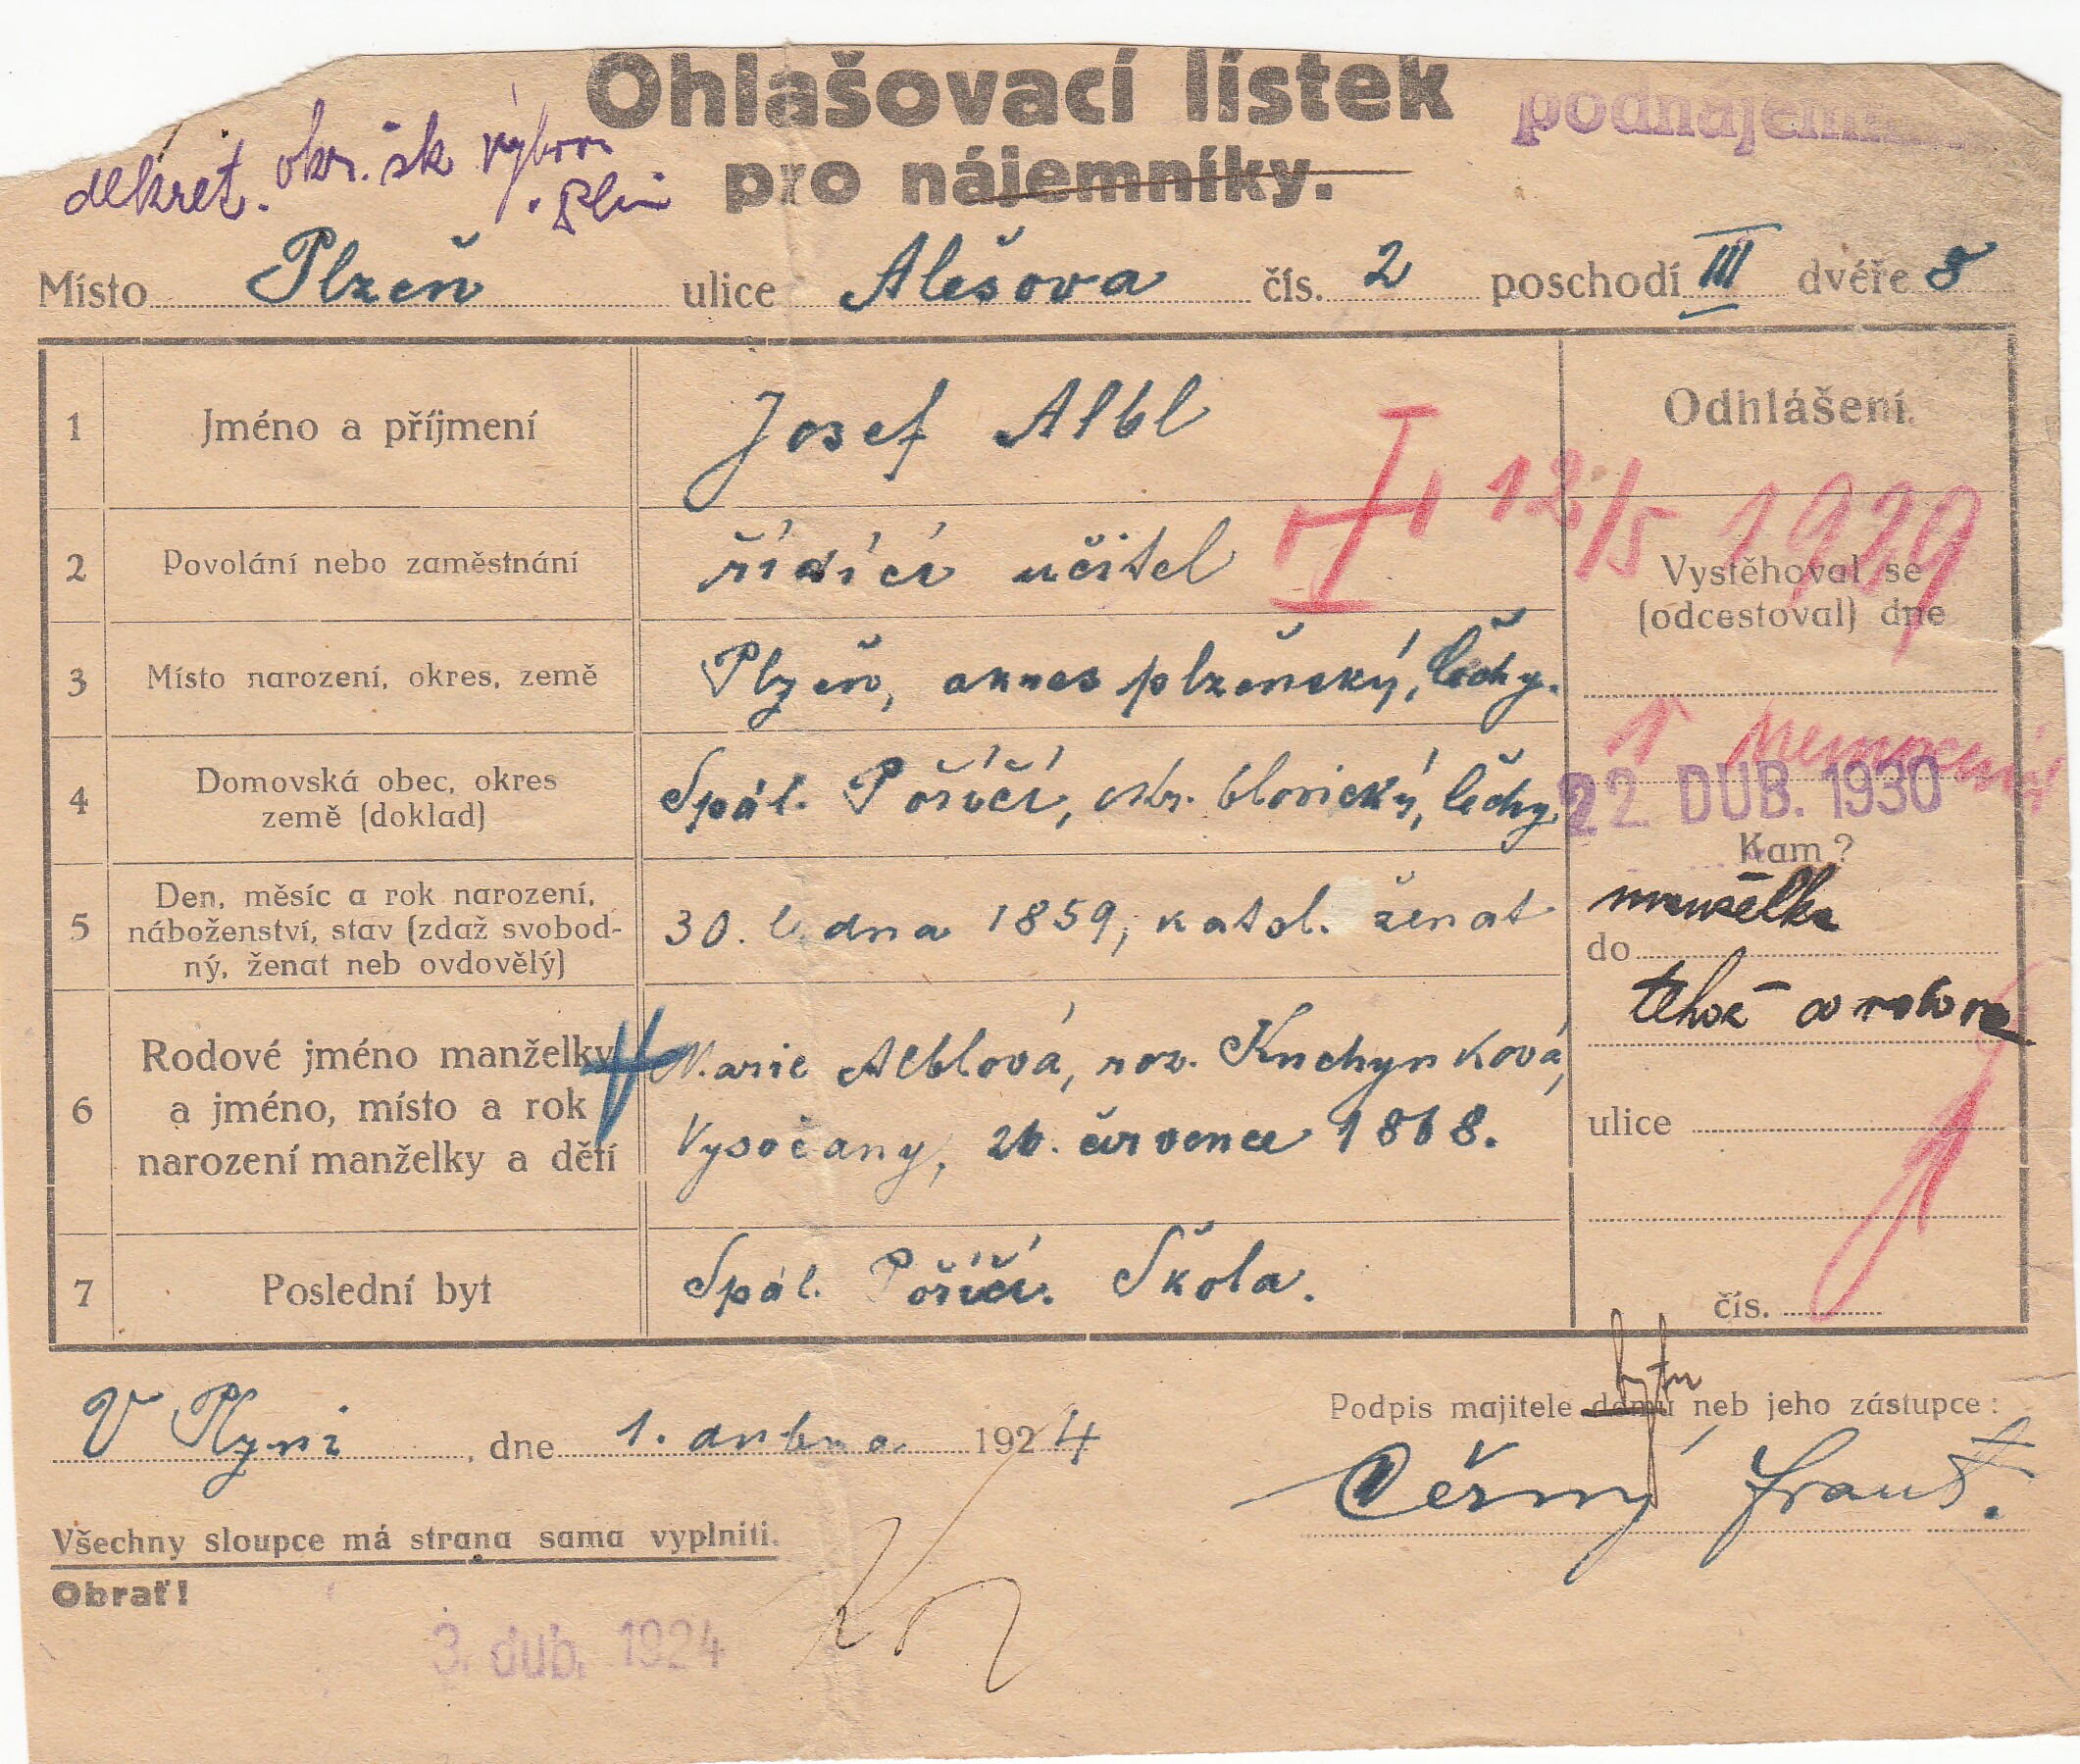 Ohlašovací lístek
pro nájemníky.
podnájem
dekret. okr. šk. výbor
Místo Plzeň ulice Alešova čís. 2 poschodí III dvéře 5
1 Jméno a příjmení Josef Albl
Odhlášení.
12/5 1929
2 Povolání nebo zaměstnání řídící učitel
Vystěhoval se
(odcestoval) dne
3 Místo narození, okres, země Plzeň, okres plzeňský, Čechy.
v nemocnici
4 Domovská obec, okres
země (doklad)
Spál. Poříčí, okr. blovický, Čechy
22. DUB. 1930
Kam?
5 Den, měsíc a rok narození,
náboženství, stav (zdaž svobod-
ný, ženat neb ovdovělý)
30. ledna 1859, katol. ženat
manželka
do
téhož
6 Rodové jméno manželky
a jméno, místo a rok
narození manželky a dětí
Marie Alblová, roz. Kuchynková,
Vysočany, 26. července 1868.
ulice
7 Poslední byt Spál. Poříčí. Škola.
čís.
V Plzni, dne 1. dubna 1924
bytu
Podpis majitele domu neb jeho zástupce:
Černý Frant.
Všechny sloupce má strana sama vyplniti.
Obrať!
3. dub. 1924